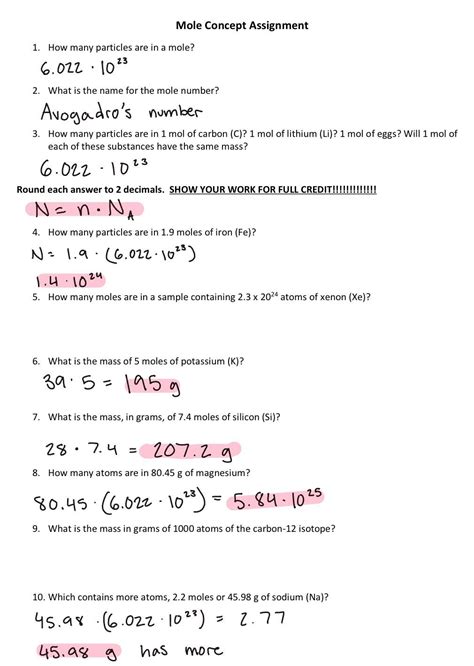 Mole Concept Assignment
1. How many particles are in a mole?
6.022 · 10²³
2. What is the name for the mole number?
Avogadro's number
3. How many particles are in 1 mol of carbon (C)? 1 mol of lithium (Li)? 1 mol of eggs? Will 1 mol of
each of these substances have the same mass?
6.022 · 10²³
Round each answer to 2 decimals. SHOW YOUR WORK FOR FULL CREDIT!!!!!!!!!!!!!
N = n · N_A
4. How many particles are in 1.9 moles of iron (Fe)?
N = 1.9 · (6.022 · 10²³)
1.4 · 10²⁴
5. How many moles are in a sample containing 2.3 x 20²⁴ atoms of xenon (Xe)?
6. What is the mass of 5 moles of potassium (K)?
39 · 5 = 195 g
7. What is the mass, in grams, of 7.4 moles of silicon (Si)?
28 · 7.4 = 207.2 g
8. How many atoms are in 80.45 g of magnesium?
80.45 · (6.022 · 10²³) = 5.84 · 10²⁵
9. What is the mass in grams of 1000 atoms of the carbon-12 isotope?
10. Which contains more atoms, 2.2 moles or 45.98 g of sodium (Na)?
45.98 · (6.022 · 10²³) = 2.77
45.98 g has more